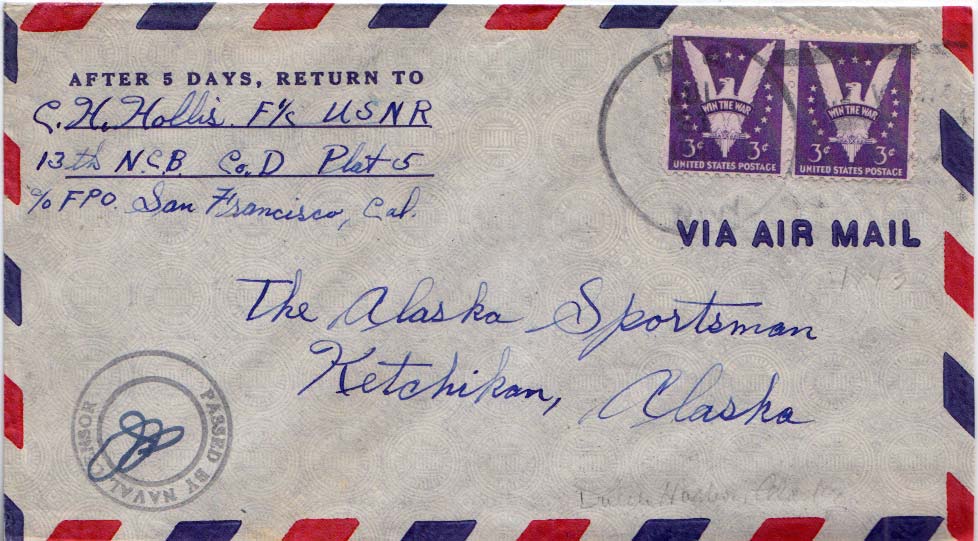 AFTER 5 DAYS, RETURN TO
C. H. Hollis F1/c USNR
13th N.C.B. Co. D Plat 5
c/o FPO. San Francisco, Cal.
WIN THE WAR
3¢ 3¢
UNITED STATES POSTAGE
WIN THE WAR
3¢ 3¢
UNITED STATES POSTAGE
VIA AIR MAIL
The Alaska Sportsman
Ketchikan, Alaska
PASSED BY NAVAL CENSOR
Dutch Harbor,